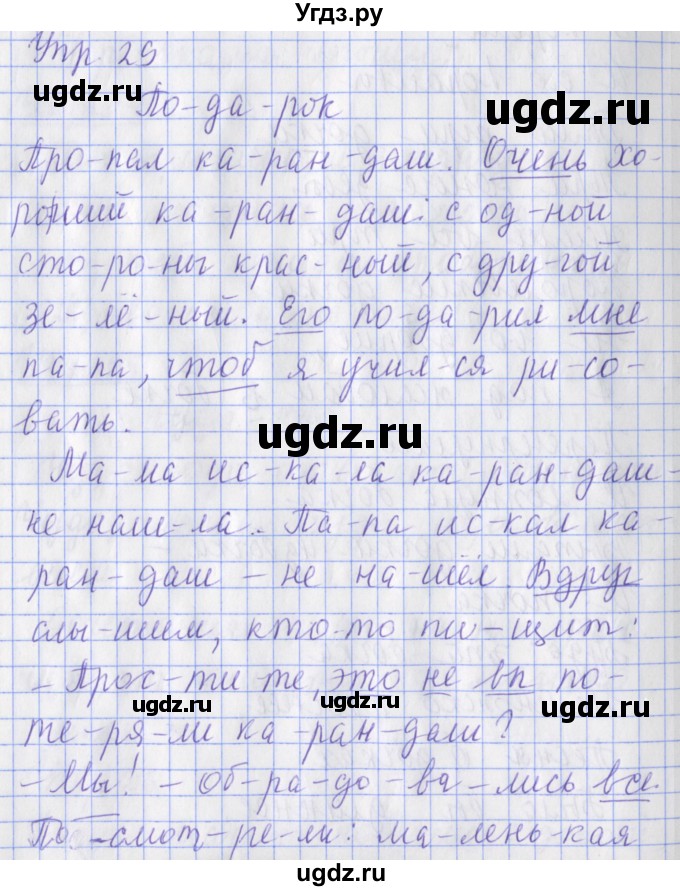 Угдз.ру
Упр 29
ugdz.ru
ugdz.ru
По-да-рок
ugdz.ru
Про-пал ка-ран-даш. Очень хо-
роший ка-ран-даш: с од-ной
сто-ро-ны крас-ный, с дру-гой
зе-лё-ный. Его по-да-рил мне
па-па, чтоб я учил-ся ри-со-
вать.
ugdz.ru
Ма-ма ис-ка-ла ка-ран-даш-
не наш-ла. Па-па ис-кал ка-
ран-даш - не на-шёл. Вдруг
слы-шим, кто-то пи-щит:
- Прос-ти-те, это не вы по-
ugdz.ru
ugdz.ru
те-ря-ли ка-ран-даш?
- Мы! - об-ра-до-ва-лись все.
По-смот-ре-ли: ма-лень-кая
ugdz.ru
ugdz.ru